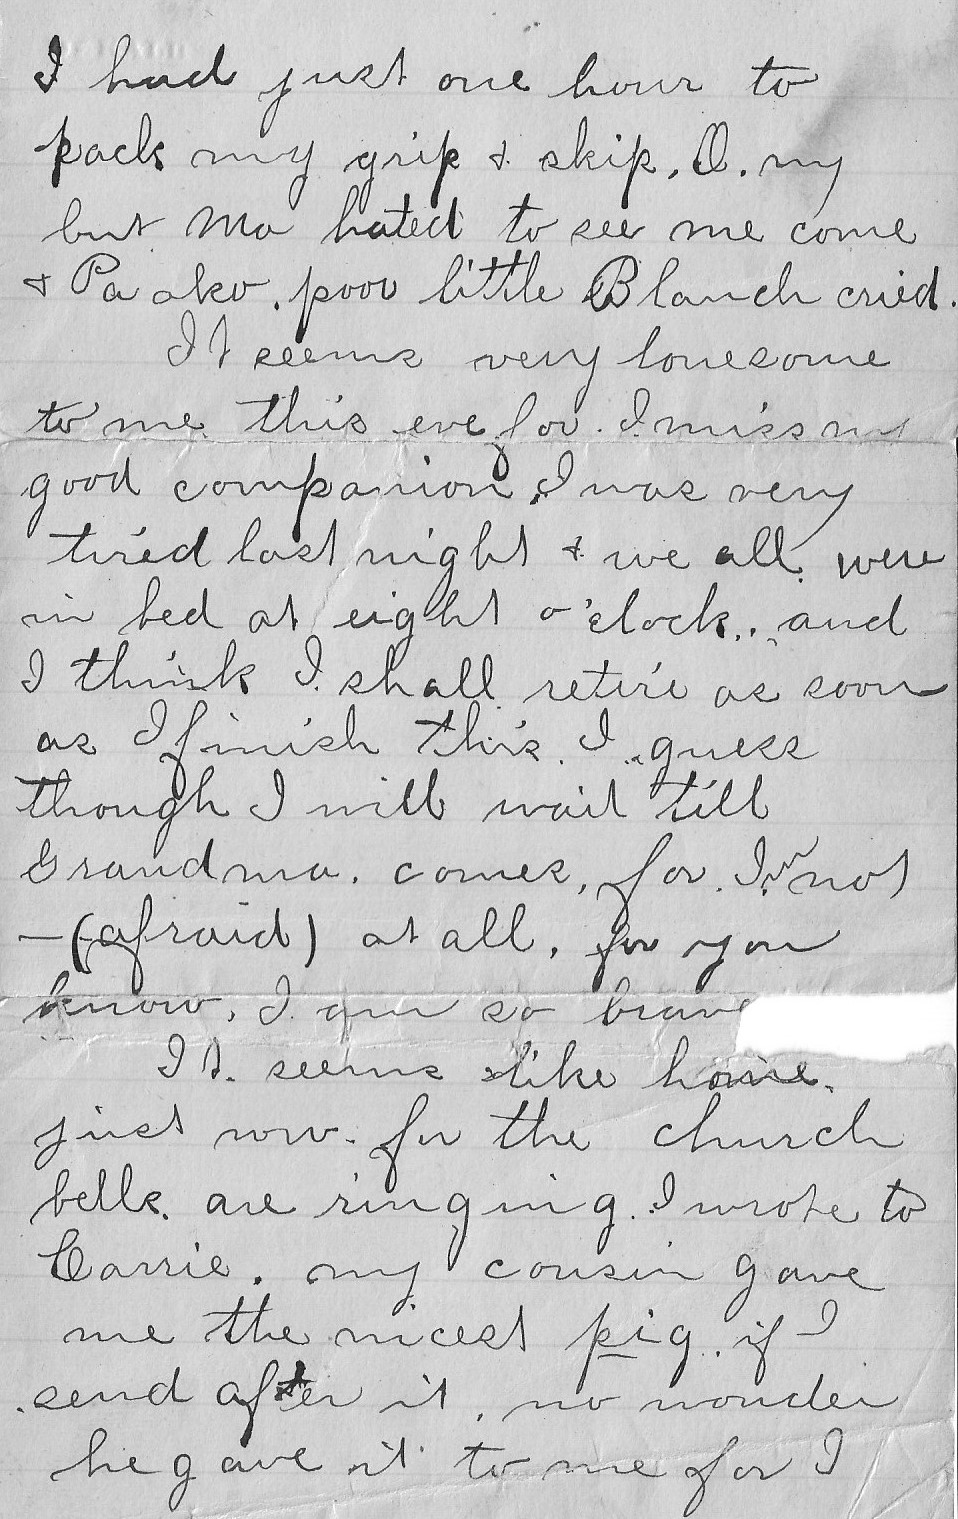 I had just one hour to
pack my grip & skip. O. my
but Ma hated to see me come
& Pa also. poor little Blanch cried.
It seems very lonesome
to me this eve for. I miss my
good companion. I was very
tired last night & we all were
in bed at eight o'clock., and
I think I shall retire as soon
as I finish this. I guess
though I will wait till
Grandma. comes, for. I'm not
—(afraid) at all, for you
know, I am so brave
It. seems like home.
just now. for the church
bells. are ringing. I wrote to
Carrie. my cousin gave
me the nicest pig. if I
send after it, no wonder
he gave it to me for I